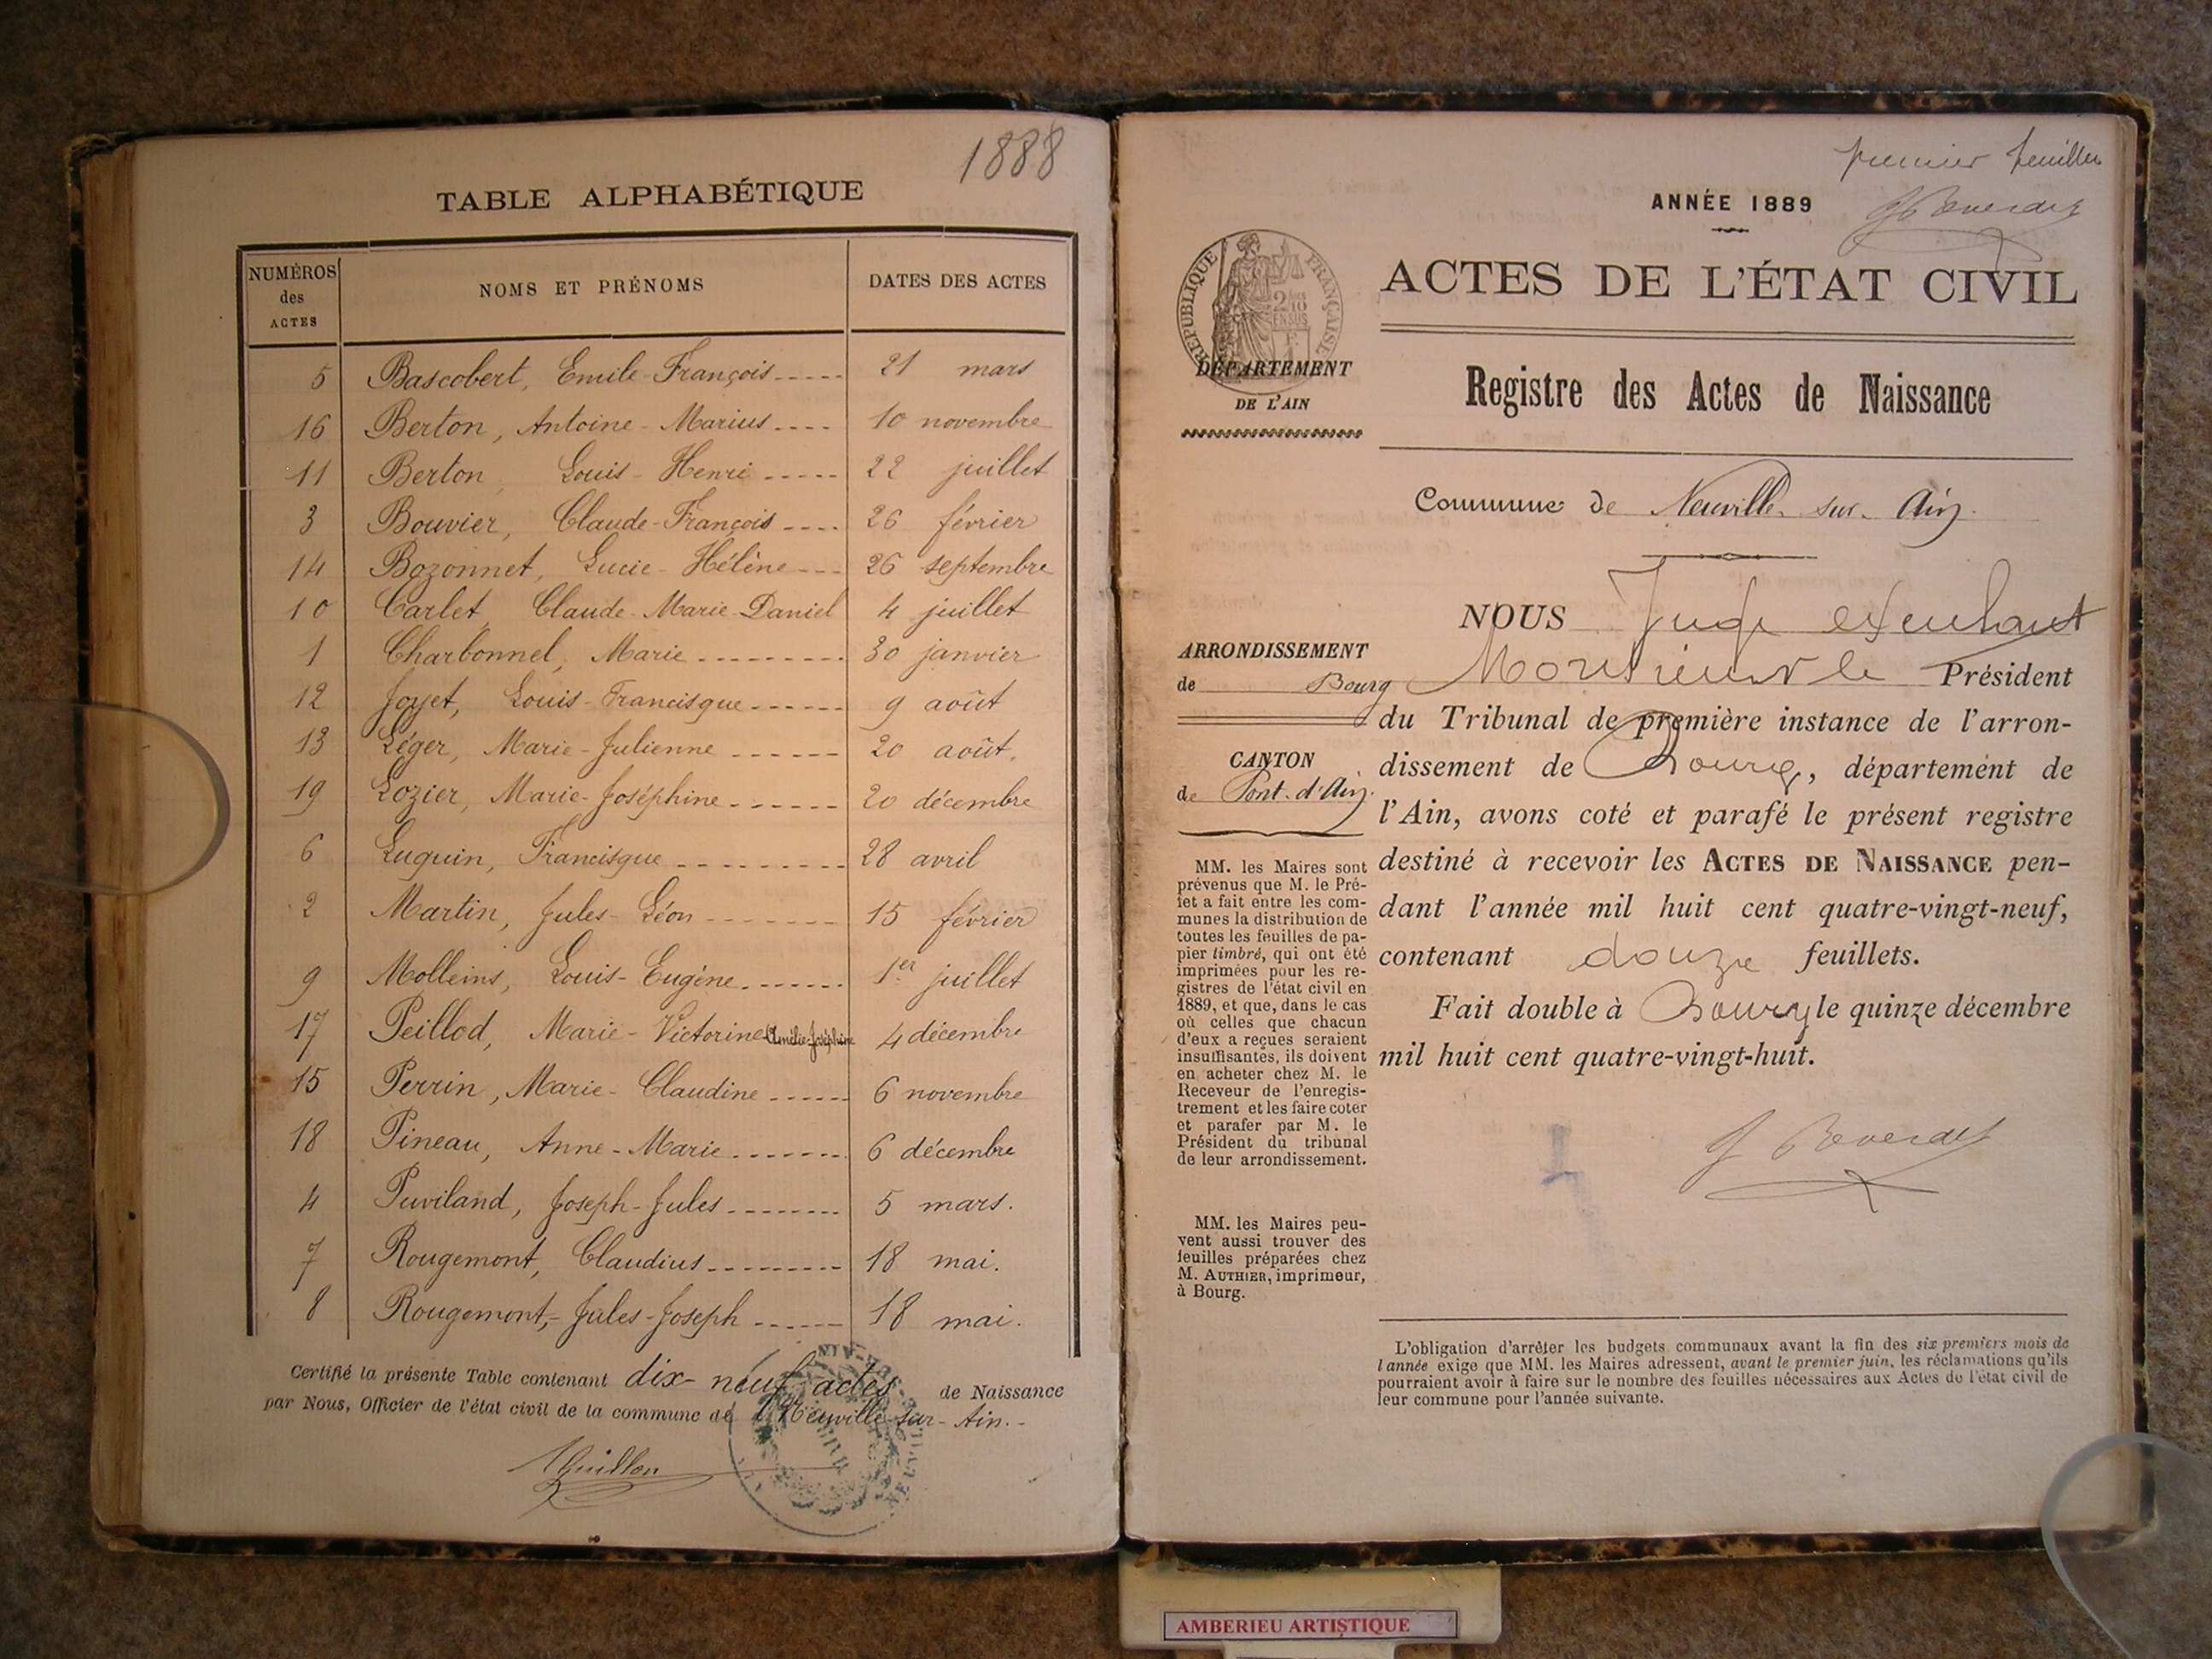 1888
TABLE ALPHABÉTIQUE
NUMÉROS des ACTES NOMS ET PRÉNOMS DATES DES ACTES
5 Bascobert, Emile-François 21 mars
16 Berton, Antoine-Marius 10 novembre
11 Berton, Louis-Henri 22 juillet
3 Bouvier, Claude-François 26 février
14 Bozonnet, Lucie-Hélène 26 septembre
10 Carlet, Claude-Marie-Daniel 4 juillet
1 Charbonnel, Marie 30 janvier
12 Joyet, Louis-Francisque 9 août
13 Léger, Marie-Julienne 20 août.
19 Lozier, Marie-Joséphine 20 décembre
6 Luquin, Francisque 28 avril
2 Martin, Jules-Léon 15 février
9 Molleins, Louis-Eugène 1er juillet
17 Peillod, Marie-Victorine Amélie-Joséphine 4 décembre
15 Perrin, Marie-Claudine 6 novembre
18 Pineau, Anne-Marie 6 décembre
4 Puviland, Joseph-Jules 5 mars.
7 Rougemont, Claudius 18 mai.
8 Rougemont, Jules-Joseph 18 mai.
Certifié la présente Table contenant dix-neuf actes de Naissance
par Nous, Officier de l'état civil de la commune de Neuville-sur-Ain.-
premier feuillet
ANNÉE 1889
ACTES DE L'ÉTAT CIVIL
RÉPUBLIQUE FRANÇAISE
2/10 EN SUS
DÉPARTEMENT
DE L'AIN
Registre des Actes de Naissance
Commune de Neuville-sur-Ain.
ARRONDISSEMENT
de Bourg
CANTON
de Pont-d'Ain.
MM. les Maires sont
prévenus que M. le Pré-
fet a fait entre les com-
munes la distribution de
toutes les feuilles de pa-
pier timbré, qui ont été
imprimées pour les re-
gistres de l'état civil en
1889, et que, dans le cas
où celles que chacun
d'eux a reçues seraient
insuffisantes, ils doivent
en acheter chez M. le
Receveur de l'enregis-
trement et les faire coter
et parafer par M. le
Président du tribunal
de leur arrondissement.
MM. les Maires peu-
vent aussi trouver des
feuilles préparées chez
M. AUTHIER, imprimeur,
à Bourg.
NOUS Juge
Monsieur le Président
du Tribunal de première instance de l'arron-
dissement de Bourg, département de
l'Ain, avons coté et parafé le présent registre
destiné à recevoir les ACTES DE NAISSANCE pen-
dant l'année mil huit cent quatre-vingt-neuf,
contenant douze feuillets.
Fait double à Bourg le quinze décembre
mil huit cent quatre-vingt-huit.
L'obligation d'arrêter les budgets communaux avant la fin des six premiers mois de
l'année exige que MM. les Maires adressent, avant le premier juin, les réclamations qu'ils
pourraient avoir à faire sur le nombre des feuilles nécessaires aux Actes de l'état civil de
leur commune pour l'année suivante.
AMBERIEU ARTISTIQUE